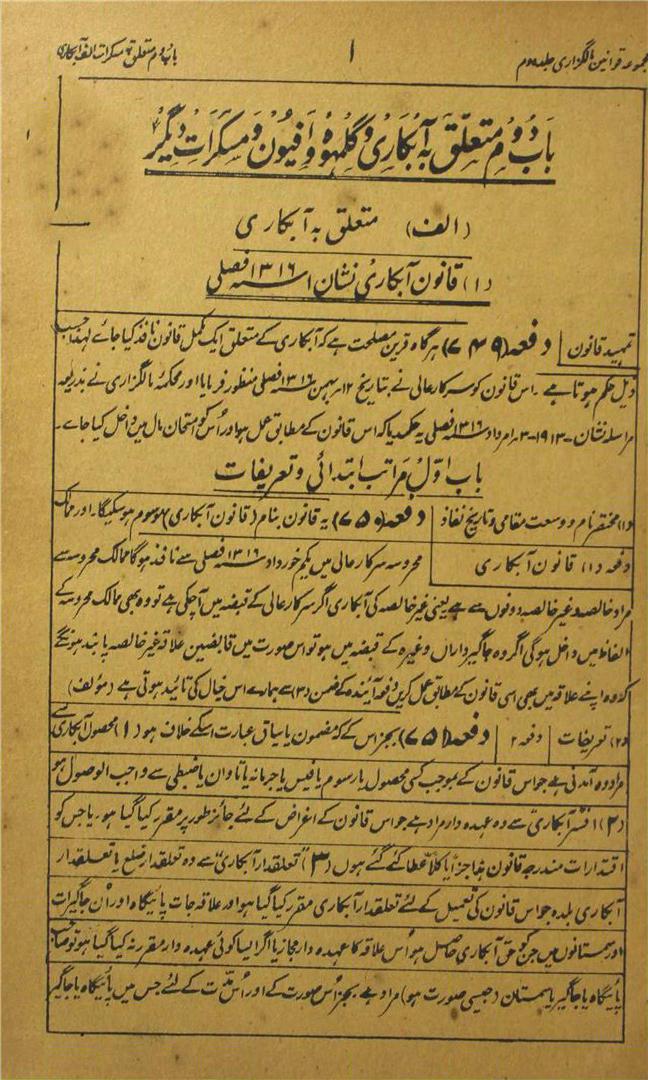 مجموعہ قوانین مالگزاری جلد دوم
۱
باب دوم متعلق بہ مسکرات الف آبکاری
باب دوم متعلق بہ آبکاری و گلمہوہ و افیون و مسکرات دیگر
(الف) متعلق بہ آبکاری
(۱) قانون آبکاری نشان ۱ سنہ ۱۳۱۶ فصلی
تمہید قانون دفعہ (۷۴۹) ہرگاہ قرین مصلحت ہے کہ آبکاری کے متعلق ایک مکمل قانون نافذ کیا جائے لہذا حسب
ذیل حکم ہوتا ہے ۔ اس قانون کو سرکار عالی نے بتاریخ ۱۲ بہمن سنہ ۱۳۱۶ فصلی منظور فرمایا اور محکمۂ مالگزاری نے بذریعہ
مراسلہ نشان ۱۹۱۳ ۔ ۳ ۔ امرداد سنہ ۱۳۱۶ فصلی یہ حکم دیا کہ اس قانون کے مطابق عمل ہو اور اُس کو امتحان مال میں داخل کیا جائے ۔
باب اوّل مراتب ابتدائی و تعریفات
(۱) مختصر نام و وسعت مقامی و تاریخ نفاذ دفعہ (۷۵۰) یہ قانون بنام (قانون آبکاری) موسوم ہو سکیگا ۔ اور ممالک
دفعہ (۱) قانون آبکاری محروسہ سرکار عالی میں یکم خورداد سنہ ۱۳۱۶ فصلی سے نافذ ہوگا ممالک محروسہ سے
مراد خالصہ و غیر خالصہ دونوں سے ہے یعنی غیر خالصہ کی آبکاری اگر سرکار عالی کے قبضہ میں آچکی ہے تو وہ بھی ممالک محروسہ کے
الفاظ میں داخل ہوگی اگر وہ جاگیرداراں وغیرہ کے قبضہ میں ہو تو اس صورت میں قابضین علاقہ غیر خالصہ پابند ہونگے
کہ وہ اپنے علاقہ میں بھی اسی قانون کے مطابق عمل کریں دفعہ آیندہ کے ضمن (۳) سے ہمارے اس خیال کی تائید ہوتی ہے (مولف)
(۲) تعریفات دفعہ ۲ دفعہ (۷۵۱) بجز اس کے کہ مضمون یا سیاق عبارت اسکے خلاف ہو (۱) محصول آبکاری سے
مراد وہ آمدنی ہے جو اس قانون کے بموجب کسی محصول یا رسوم یا فیس یا جرمانہ یا تاوان یا ضبطی سے واجب الوصول ہو
(۲) افسر آبکاری سے وہ عہدہ دار مراد ہے جو اس قانون کے اغراض کے لئے جائز طور پر مقرر کیا گیا ہو ۔ یا جس کو
اقتدارات مندرجہ قانون ہذا جزءً یا کلاً عطا کئے گئے ہوں (۳) "تعلقدار آبکاری" سے وہ تعلقدار ضلع یا تعلقدار
آبکاری بلدہ جو اس قانون کی تعمیل کے لئے تعلقدار آبکاری مقرر کیا گیا ہو اور علاقہ جات پائیگاہ اور اُن جاگیرات
اور سمستانوں میں جن کو حق آبکاری حاصل ہو اُس علاقہ کا عہدہ دار مجاز یا اگر ایسا کوئی عہدہ دار مقرر نہ کیا گیا ہو تو صاحب
پائیگاہ یا جاگیر یا سمستان (جیسی صورت ہو) مراد ہے بجز اُس صورت کے اور اُس مدّت کے لئے جس میں پائیگاہ یا جاگیر